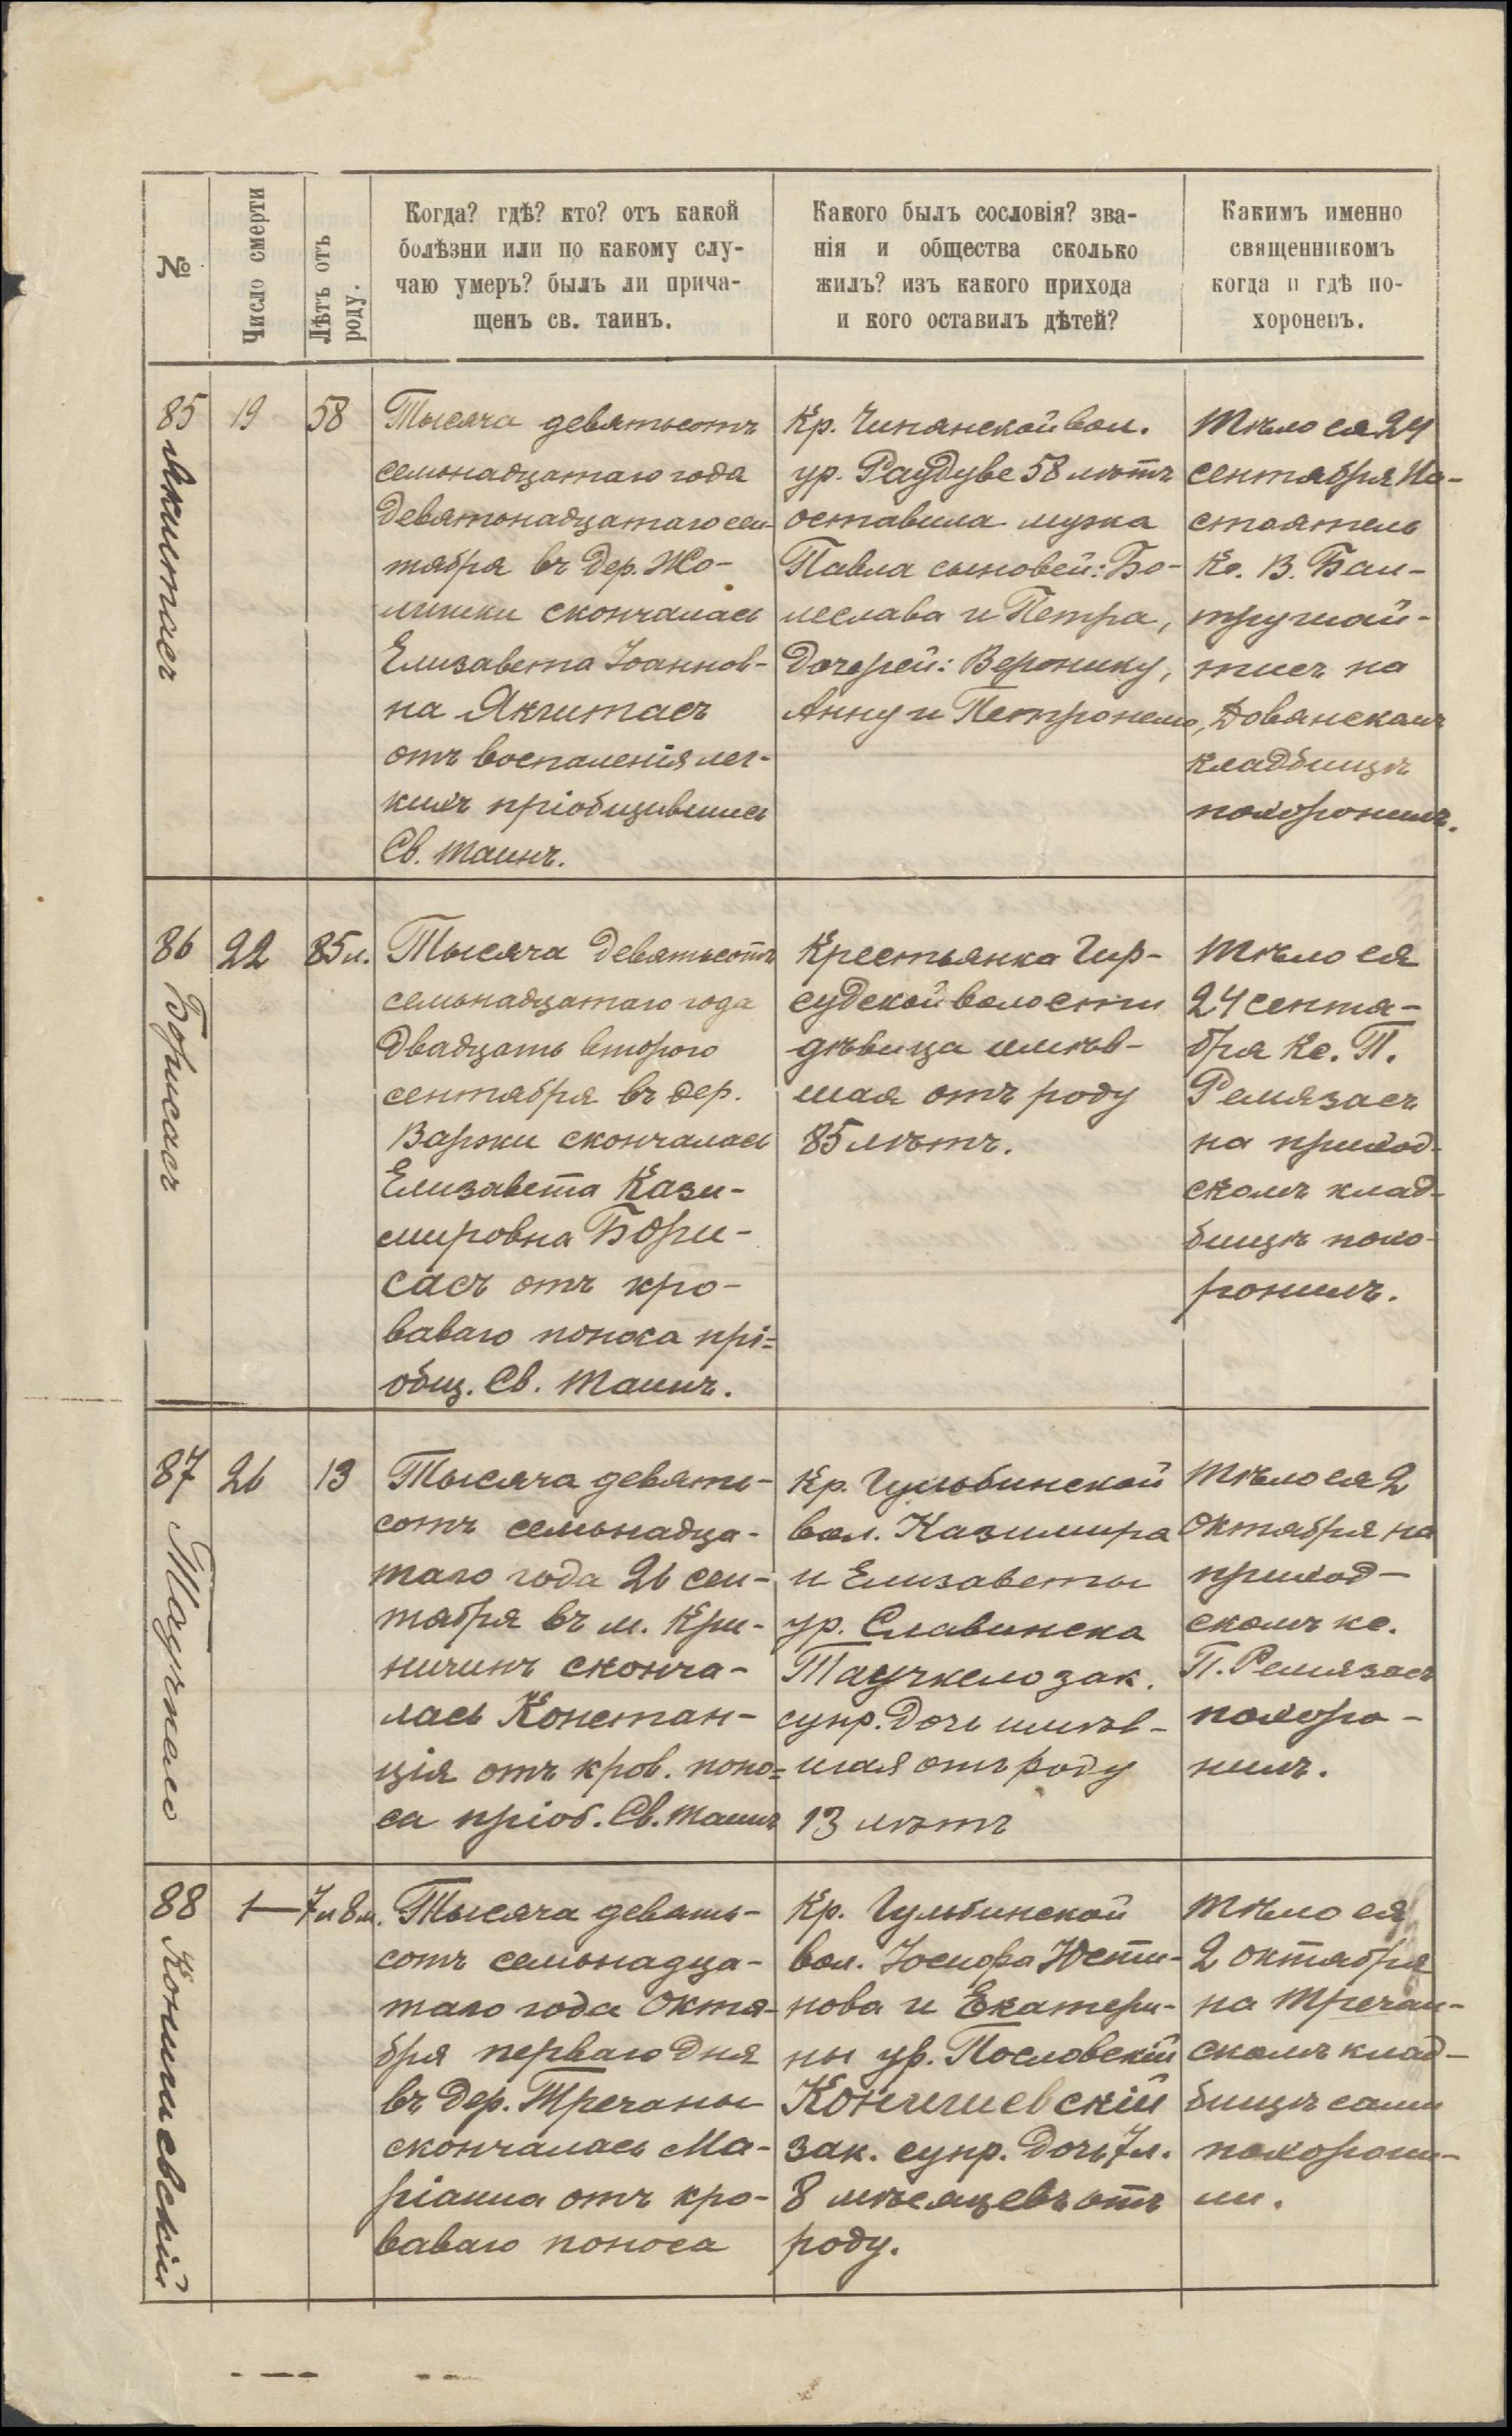 №
Число смерти
Лѣтъ отъ
роду.
Когда? гдѣ? кто? отъ какой
болѣзни или по какому слу-
чаю умеръ? былъ ли прича-
щенъ св. таинъ.
Какого былъ сословія? зва-
нія и общества сколько
жилъ? изъ какого прихода
и кого оставилъ дѣтей?
Какимъ именно
священникомъ
когда и гдѣ по-
хороненъ.
85
Якштасъ
19
58
Тысяча девятьсотъ
семьнадцатаго года
девятонадцатаго сен-
тября въ дер. Жо-
лишки скончалась
Елизавета Іоаннов-
на Якштасъ
отъ воспаленія лег-
кихъ пріобщившись
Св. Таинъ.
Кр. Чипянской вол.
ур. Раудуве 58 лѣтъ
оставила мужа
Павла сыновей: Бо-
леслава и Петра,
дочерей: Веронику,
Анну и Петронелю,
Тѣло ея 24
сентября На-
стоятель
Кс. В. Бал-
трушай-
тисъ на
Довянскомъ
кладбищѣ
похоронилъ.
86
Борисасъ
22
85 л.
Тысяча девятьсотъ
семьнадцатаго года
двадцать второго
сентября въ дер.
Варжи скончалась
Елизавета Кази-
мировна Бори-
сасъ отъ кро-
ваваго поноса прі-
общ. Св. Таинъ.
Крестьянка Гир-
судской волости
дѣвица имѣв-
шая отъ роду
85 лѣтъ.
Тѣло ея
24 сентя-
бря Кс. П.
Ремязасъ
на приход-
скомъ клад-
бищѣ похо-
ронилъ.
87
Таучкело
26
13
Тысяча девять-
сотъ семьнадца-
таго года 26 сен-
тября въ м. Кри-
ничинѣ сконча-
лась Констан-
ція отъ кров. поно-
са пріоб. Св. Таинъ
Кр. Гульбинской
вол. Казимира
и Елизаветы
ур. Славинска
Таучкело зак.
супр. дочь имѣв-
шая отъ роду
13 лѣтъ
Тѣло ея 2
октября на
приход-
скомъ кс.
П. Ремязасъ
похоро-
нилъ.
88
Конишевскій
1
7 л 8 м.
Тысяча девять-
сотъ семьнадца-
таго года октя-
бря перваго дня
въ дер. Тречаны
скончалась Ма-
ріанна отъ кро-
ваваго поноса
Кр. Гульбинской
вол. Іосифа Юсти-
нова и Екатери-
ны ур. Пословскій
Конишевскій
зак. супр. дочь 7 л.
8 мѣсяцевъ отъ
роду.
Тѣло ея
2 октября
на Тречан-
скомъ клад-
бищѣ сами
похорони-
ли.